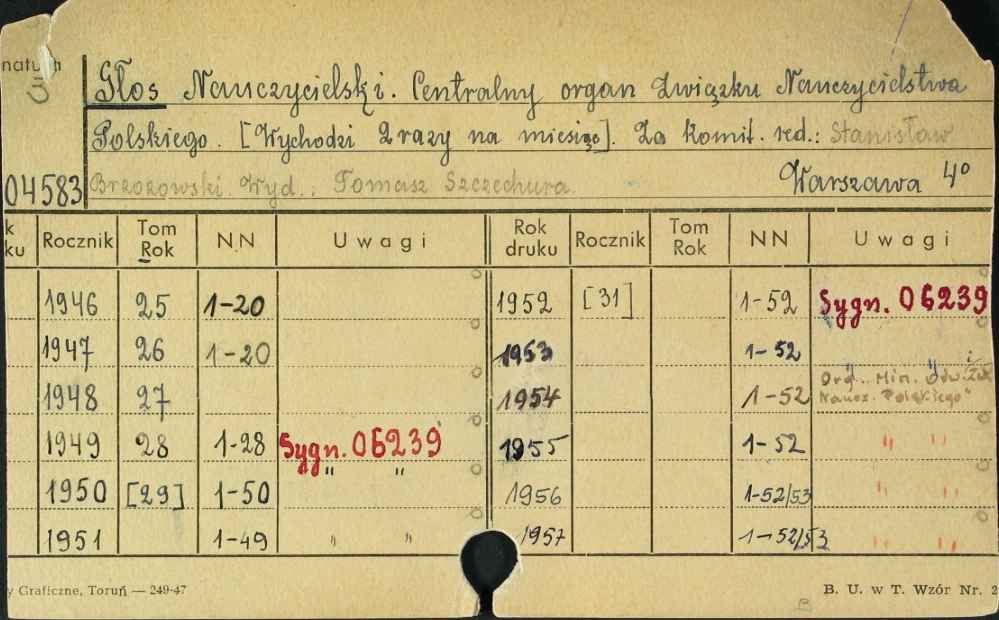 Głos Nauczycielski. Centralny organ Związku Nauczycielstwa
Polskiego. [Wychodzi 2 razy na miesiąc]. Za komit. red.: Stanisław
04583 Brzozowski. Wyd.: Tomasz Szczechura. Warszawa 4°
k ku Rocznik Tom Rok NN Uwagi Rok druku Rocznik Tom Rok NN Uwagi
1946 25 1-20 1952 [31] 1-52 Sygn. 06239
1947 26 1-20 1953 1-52 " "
1948 27 1954 1-52 Org. Min. Ośw. i Zw. Naucz. Polskiego"
1949 28 1-28 Sygn. 06239 1955 1-52 " "
1950 [29] 1-50 " " 1956 1-52/53 " "
1951 1-49 " " 1957 1-52/53 " "
y Graficzne, Toruń — 249-47 B. U. w T. Wzór Nr. 2
B